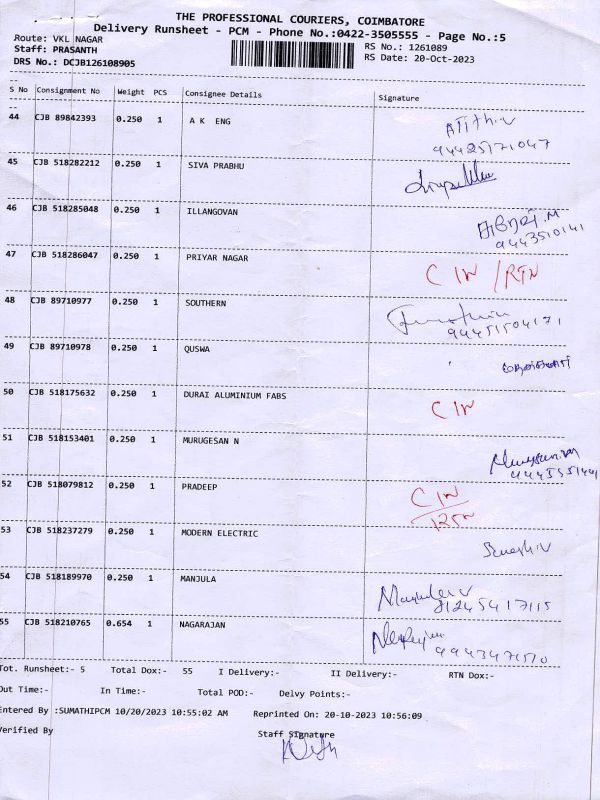 THE PROFESSIONAL COURIERS, COIMBATORE
Delivery Runsheet - PCM - Phone No.:0422-3505555 - Page No.:5
Route: VKL NAGAR RS No.: 1261089
Staff: PRASANTH RS Date: 20-Oct-2023
DRS No.: DCJB126108905
S No Consignment No Weight PCS Consignee Details Signature
44 CJB 89842393 0.250 1 A K ENG
45 CJB 518282212 0.250 1 SIVA PRABHU
46 CJB 518285048 0.250 1 ILLANGOVAN
9443510141
47 CJB 518286047 0.250 1 PRIYAR NAGAR CIN /RTN
48 CJB 89710977 0.250 1 SOUTHERN
94451504171
49 CJB 89710978 0.250 1 QUSWA
50 CJB 518175632 0.250 1 DURAI ALUMINIUM FABS CIN
51 CJB 518153401 0.250 1 MURUGESAN N
52 CJB 518079812 0.250 1 PRADEEP CIN
53 CJB 518237279 0.250 1 MODERN ELECTRIC
54 CJB 518189970 0.250 1 MANJULA
55 CJB 518210765 0.654 1 NAGARAJAN
Tot. Runsheet:- 5 Total Dox:- 55 I Delivery:- II Delivery:- RTN Dox:-
Out Time:- In Time:- Total POD:- Delvy Points:-
Entered By :SUMATHIPCM 10/20/2023 10:55:02 AM Reprinted On: 20-10-2023 10:56:09
Verified By Staff Signature